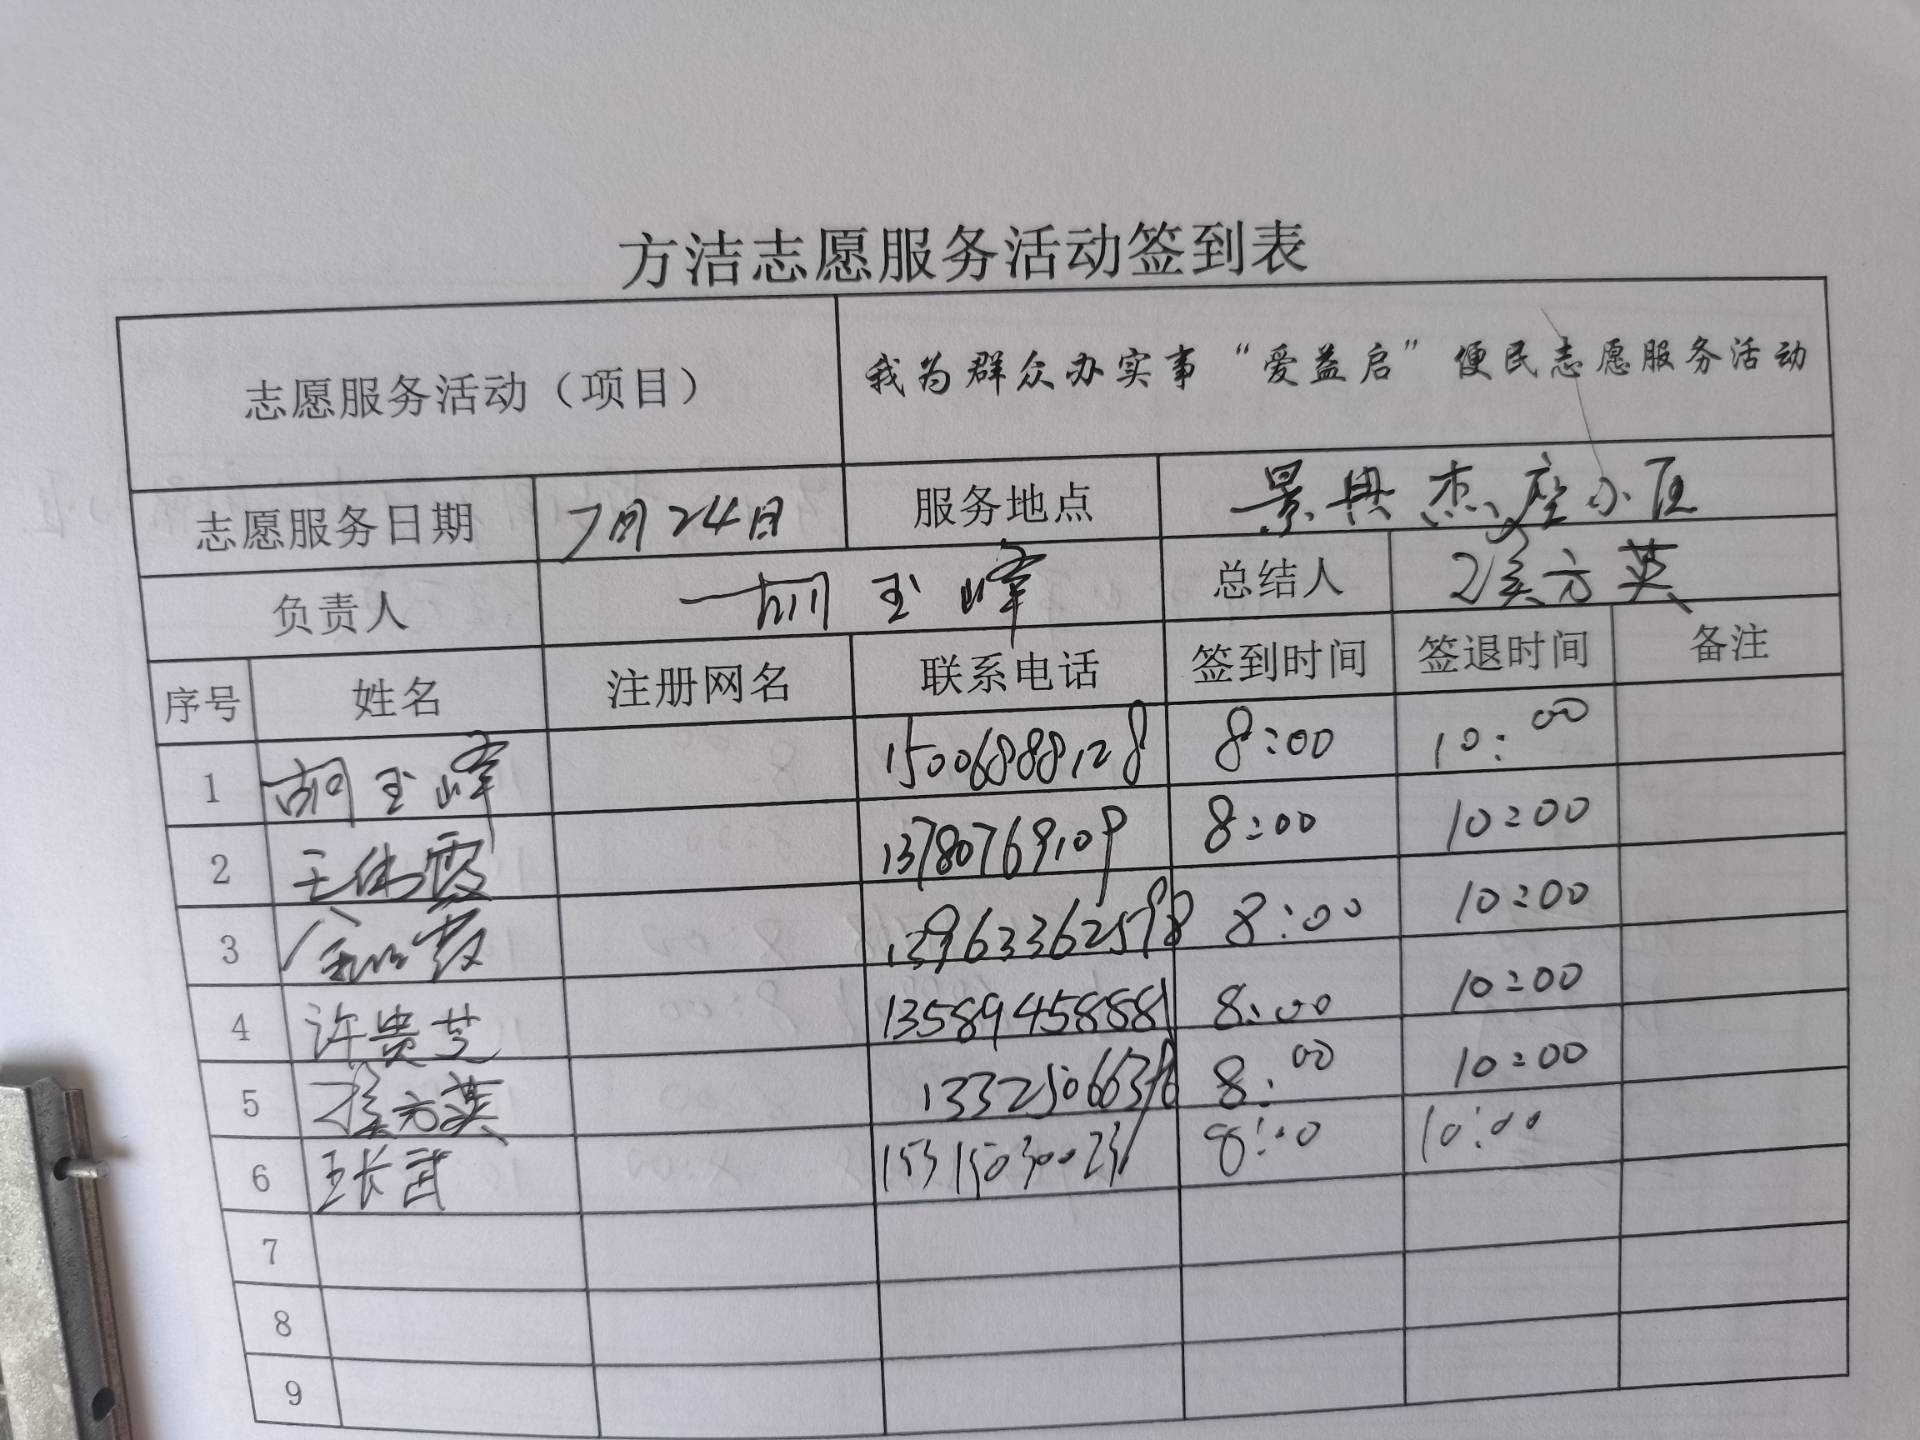 方洁志愿服务活动签到表
志愿服务活动（项目） 我为群众办实事“爱益启”便民志愿服务活动
志愿服务日期 7月24日 服务地点 景典杰座小区
负责人 胡玉峰 总结人 方英
序号 姓名 注册网名 联系电话 签到时间 签退时间 备注
1 胡玉峰 15006888128 8:00 10:00
2 王伟霞 13780769109 8:00 10:00
3 霞 13963362598 8:00 10:00
4 许贵芝 13589458881 8:00 10:00
5 方英 8:00 10:00
6 王长武 15315030023 8:00 10:00
7
8
9